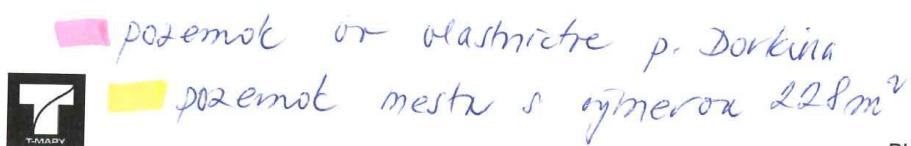 pozemok vo vlastníctve p. Dorkina
pozemok mesta s výmerou 228m²
T-MAPY